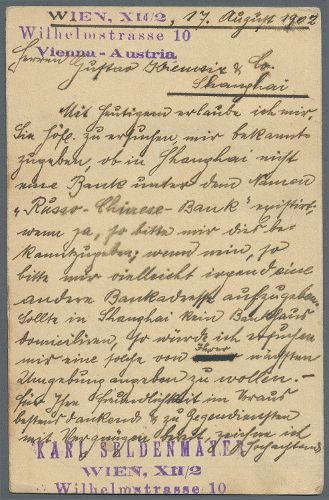 WIEN, XII/2, 17. August 1902
Wilhelmstrasse 10
Vienna - Austria
Herren Gustav & Co.
Shanghai
Mit Heutigem erlaube ich mir,
Sie höfl. zu ersuchen mir bekannt-
zugeben, ob in Shanghai nicht
eine Bank unter dem Namen
„Russo-Chinese-Bank" existirt,
wenn ja, so bitte mir dies be-
kanntzugeben; wenn nein, so
bitte mir vielleicht irgend eine
andere Bankadresse aufzugeben.
Sollte in Shanghai kein Bankhaus
domiciliren, so würde ich ersuchen
mir eine solche von Ihrer nächsten
Umgebung angeben zu wollen. -
Für Ihre Freundlichkeit im Voraus
bestens dankend & zu Gegendiensten
mit Vergnügen bereit, zeichne ich
Hochachtend
KARL SELDENMAYER
WIEN, XII/2
Wilhelmstrasse 10